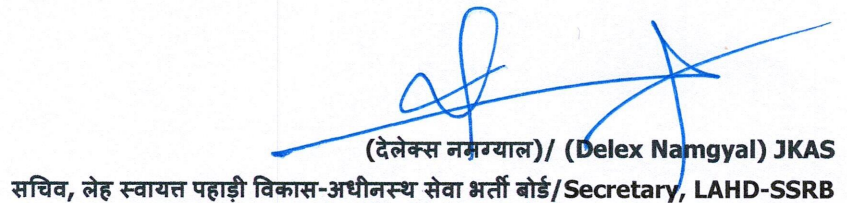 (देलेक्स नमग्याल)/ (Delex Namgyal) JKAS
सचिव, लेह स्वायत्त पहाड़ी विकास-अधीनस्थ सेवा भर्ती बोर्ड/Secretary, LAHD-SSRB